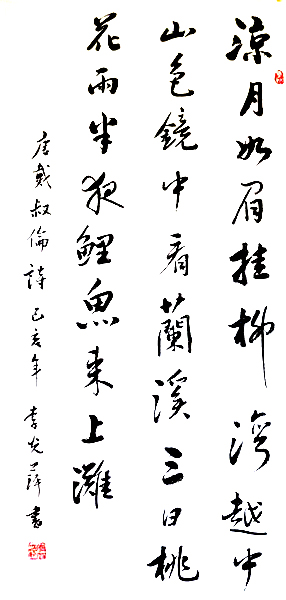 涼月如眉挂柳灣越中
山色鏡中看蘭溪三日桃
花雨半夜鯉魚來上灘
唐戴叔倫詩己亥年李光